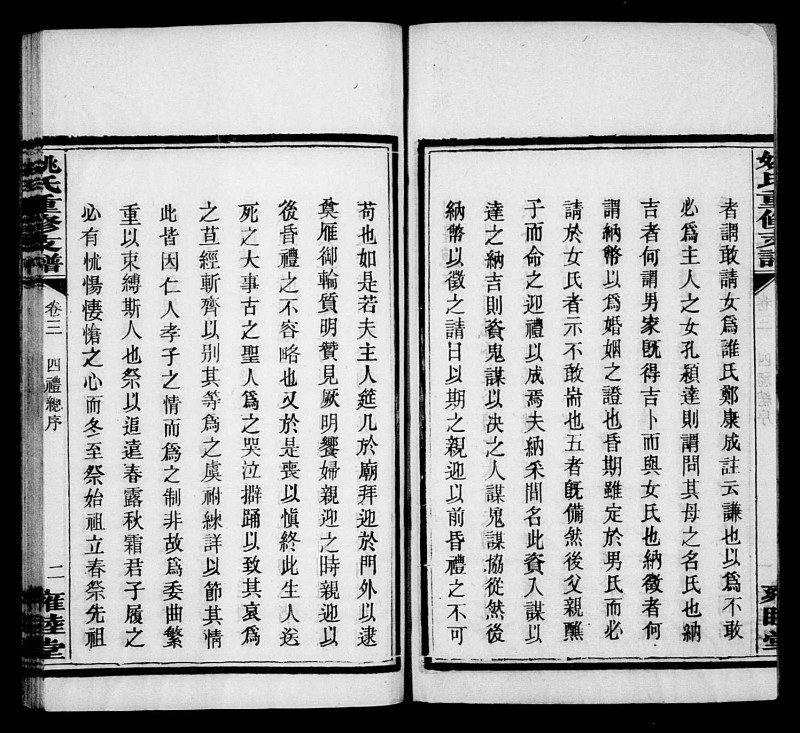 姚氏重修支譜
者謂敢請女爲誰氏鄭康成註云謙也以爲不敢
必爲主人之女孔穎達則謂問其母之名氏也納
吉者何謂男家旣得吉卜而與女氏也納徵者何
謂納幣以爲婚姻之證也昏期雖定於男氏而必
請於女氏者示不敢耑也五者旣備然後父親醮
子而命之迎禮以成焉夫納采問名此資人謀以
達之納吉則資鬼謀以決之人謀鬼謀協從然後
納幣以徵之請日以期之親迎以前昏禮之不可
苟也如是若夫主人筵几於廟拜迎於門外以逮
奠雁御輪質明贊見厥明饗婦親迎之時親迎以
後昏禮之不容略也又於是喪以愼終此生人送
死之大事古之聖人爲之哭泣擗踊以致其哀爲
之苴絰斬齊以別其等爲之虞祔練詳以節其情
此皆因仁人孝子之情而爲之制非故爲委曲繁
重以束縛斯人也祭以追遠春露秋霜君子履之
必有怵惕悽愴之心而冬至祭始祖立春祭先祖
姚氏重修支譜
卷三
四禮總序
二
雍睦堂